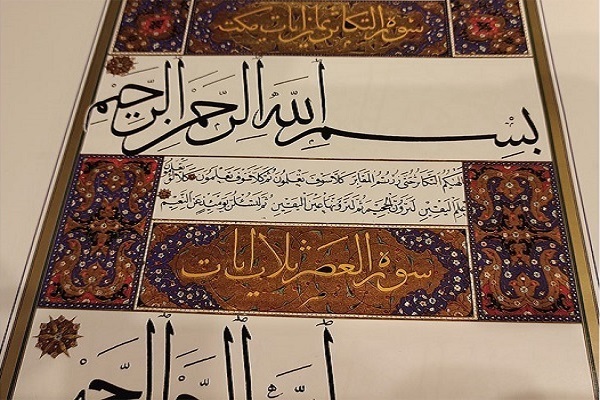 سورة التكاثر ثمان ايات مكية
بِسْمِ اللهِ الرَّحْمٰنِ الرَّحِيمِ
الهيكم التكاثر حتى زرتم المقابر كلا سوف تعلمون ثم كلا سوف تعلمون كلا لو تعلمون
علم اليقين لترون الجحيم ثم لترونها عين اليقين ثم لتسئلن يومئذ عن النعيم
سورة العصر ثلاث ايات